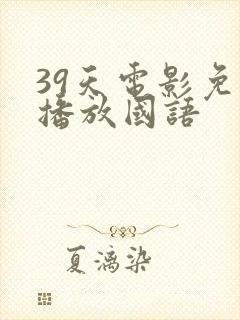 39天電影免
播放國語
夏漓染